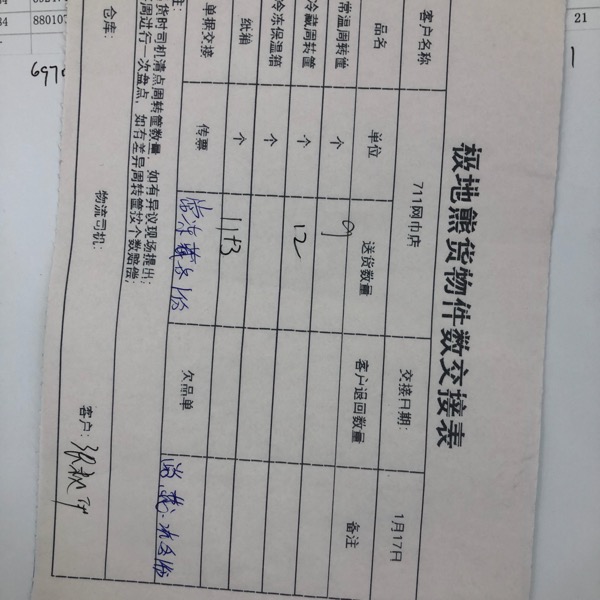 极地熊货物件数交接表
客户名称 711网巾店 交接日期: 1月17日
品名 单位 送货数量 客户退回数量 备注
常温周转筐 个 9
冷藏周转筐 个 12
冷冻保温箱 个
纸箱 个 11+3
单据交接 传票 欠品单
注:
货时司机清点周转筐数量,如有异议现场提出;
周进行一次盘点,如有差异周转筐按个数赔偿;
仓库: 物流司机: 客户:
34 880107
21